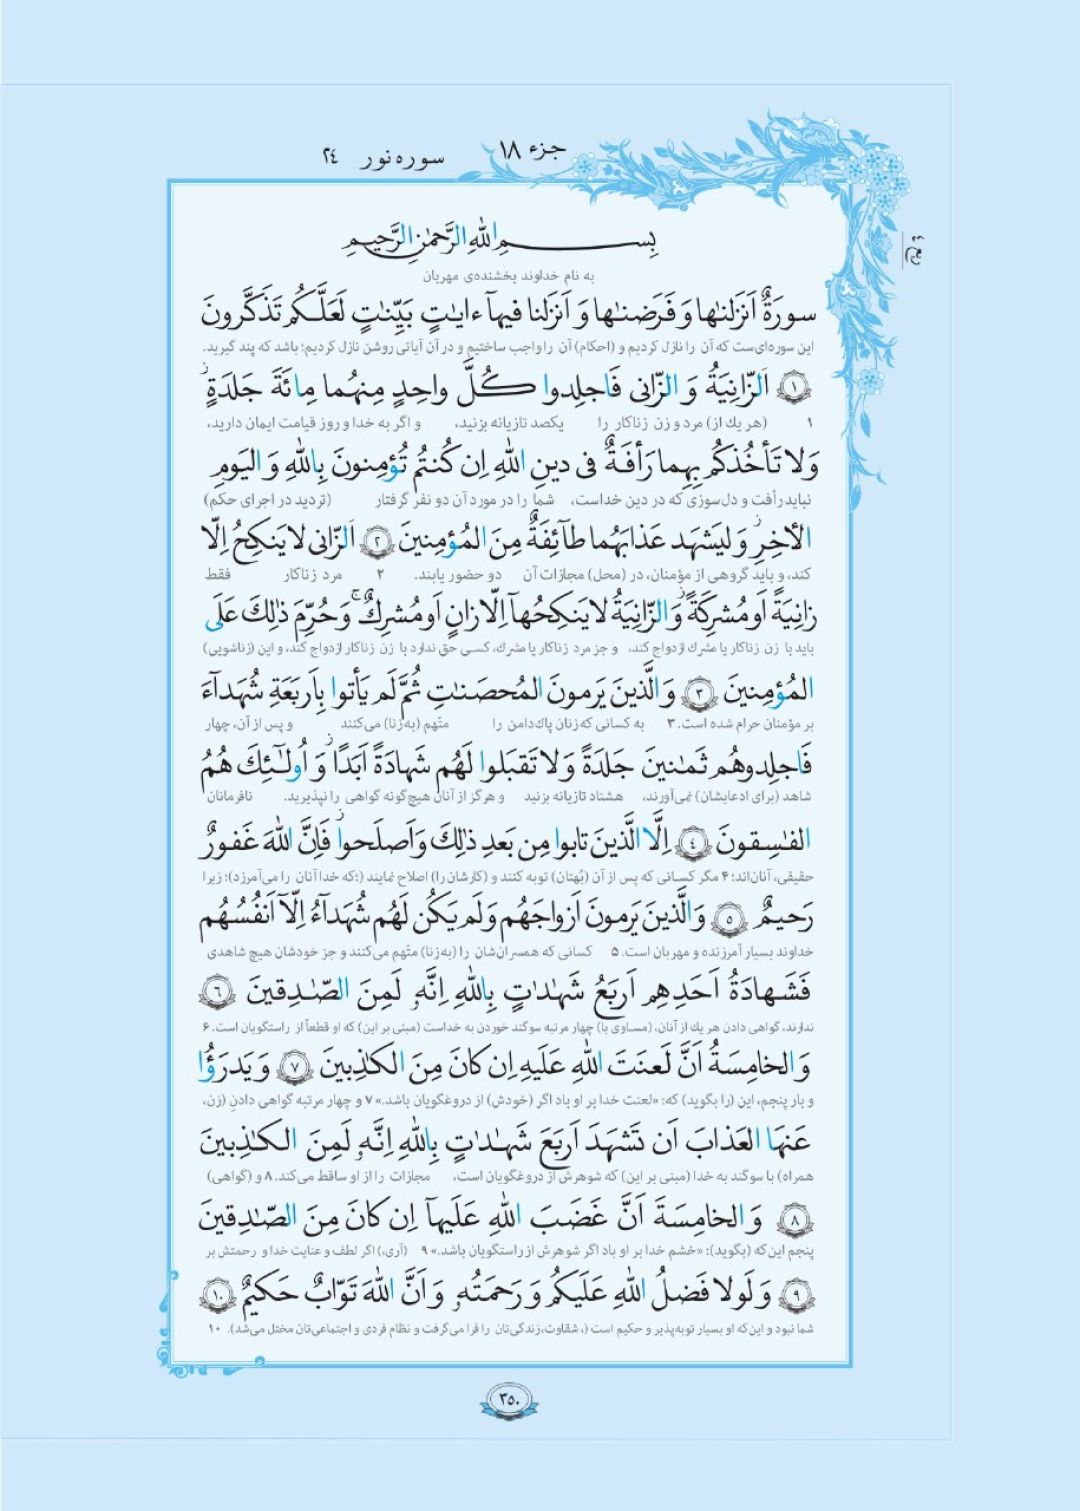 جزء ۱۸
سوره نور ۲۴
ربع ٤
بِسمِ اللهِ الرَّحمٰنِ الرَّحیمِ
به نام خداوند بخشنده‌ی مهربان
سورَةٌ اَنزَلنٰها وَ فَرَضنٰها وَ اَنزَلنا فیهآ ءایٰتٍ بَیِّنٰتٍ لَعَلَّکُم تَذَکَّرونَ
این سوره‌ای‌ست که آن را نازل کردیم و (احکام) آن را واجب ساختیم و در آن آیاتی روشن نازل کردیم؛ باشد که پند گیرید.
﴿۱﴾ اَلزّانِیَةُ وَ الزّانی فَاجلِدوا کُلَّ واحِدٍ مِنهُما مِائَةَ جَلدَةٍ ز
۱ (هر یك از) مرد و زن زناکار را یکصد تازیانه بزنید، و اگر به خدا و روز قیامت ایمان دارید،
وَ لا تَأخُذکُم بِهِما رَأفَةٌ فی دینِ اللهِ اِن کُنتُم تُؤمِنونَ بِاللهِ وَ الیَومِ
نباید رأفت و دل‌سوزی که در دین خداست، شما را در مورد آن دو نفر گرفتار (تردید در اجرای حکم)
الأخِرِ ز وَ لیَشهَد عَذابَهُما طآئِفَةٌ مِنَ المُؤمِنینَ ﴿۲﴾ اَلزّانی لا یَنکِحُ اِلّا
کند، و باید گروهی از مؤمنان، در (محل) مجازات آن دو حضور یابند. ۲ مرد زناکار فقط
زانِیَةً اَو مُشرِکَةً ز وَ الزّانِیَةُ لا یَنکِحُهآ اِلّا زانٍ اَو مُشرِكٌ ۚ وَ حُرِّمَ ذٰلِكَ عَلَی
باید با زن زناکار یا مشرك ازدواج کند، و جز مرد زناکار یا مشرك، کسی حق ندارد با زن زناکار ازدواج کند، و این (زناشویی)
المُؤمِنینَ ﴿۳﴾ وَ الَّذینَ یَرمونَ المُحصَنٰتِ ثُمَّ لَم یَأتوا بِاَربَعَةِ شُهَدآءَ
بر مؤمنان حرام شده است. ۳ به کسانی که زنان پاك‌دامن را متّهم (به زنا) می‌کنند و پس از آن، چهار
فَاجلِدوهُم ثَمٰنینَ جَلدَةً وَ لا تَقبَلوا لَهُم شَهادَةً اَبَدًا ز وَ اُولٰٓئِكَ هُمُ
شاهد (برای ادعایشان) نمی‌آورند، هشتاد تازیانه بزنید و هرگز از آنان هیچ‌گونه گواهی را نپذیرید. نافرمانان
الفٰسِقونَ ﴿٤﴾ اِلَّا الَّذینَ تابوا مِن بَعدِ ذٰلِكَ وَ اَصلَحوا ز فَاِنَّ اللهَ غَفورٌ
حقیقی، آنان‌اند؛ ۴ مگر کسانی که پس از آن (بُهتان) توبه کنند و (کارشان را) اصلاح نمایند (؛که خدا آنان را می‌آمرزد)؛ زیرا
رَحیمٌ ﴿۵﴾ وَ الَّذینَ یَرمونَ اَزواجَهُم وَ لَم یَکُن لَهُم شُهَدآءُ اِلّآ اَنفُسُهُم
خداوند بسیار آمرزنده و مهربان است. ۵ کسانی که همسران‌شان را (به زنا) متّهم می‌کنند و جز خودشان هیچ شاهدی
فَشَهادَةُ اَحَدِهِم اَربَعُ شَهٰدٰتٍ بِاللهِ اِنَّهُۥ لَمِنَ الصّٰدِقینَ ﴿٦﴾
ندارند، گواهی دادن هر یك از آنان، (مساوی با) چهار مرتبه سوگند خوردن به خداست (مبنی بر این) که او قطعاً از راستگویان است. ۶
وَ الخامِسَةُ اَنَّ لَعنَتَ اللهِ عَلَیهِ اِن کانَ مِنَ الکٰذِبینَ ﴿۷﴾ وَ یَدرَؤُا
و بار پنجم، این (را بگوید) که: «لعنت خدا بر او باد اگر (خودش) از دروغگویان باشد.» ۷ و چهار مرتبه گواهی دادنِ (زن،
عَنهَا العَذابَ اَن تَشهَدَ اَربَعَ شَهٰدٰتٍ بِاللهِ اِنَّهُۥ لَمِنَ الکٰذِبینَ
همراه) با سوگند به خدا (مبنی بر این) که شوهرش از دروغگویان است، مجازات را از او ساقط می‌کند. ۸ و (گواهی)
﴿۸﴾ وَ الخامِسَةَ اَنَّ غَضَبَ اللهِ عَلَیهآ اِن کانَ مِنَ الصّٰدِقینَ
پنجم این‌که (بگوید): «خشم خدا بر او باد اگر شوهرش از راستگویان باشد.» ۹ (آری،) اگر لطف و عنایت خدا و رحمتش بر
﴿۹﴾ وَ لَولا فَضلُ اللهِ عَلَیکُم وَ رَحمَتُهُۥ وَ اَنَّ اللهَ تَوّابٌ حَکیمٌ ﴿۱۰﴾
شما نبود و این‌که او بسیار توبه‌پذیر و حکیم است (، شقاوت، زندگی‌تان را فرا می‌گرفت و نظام فردی و اجتماعی‌تان مختل می‌شد). ۱۰
۳۵۰